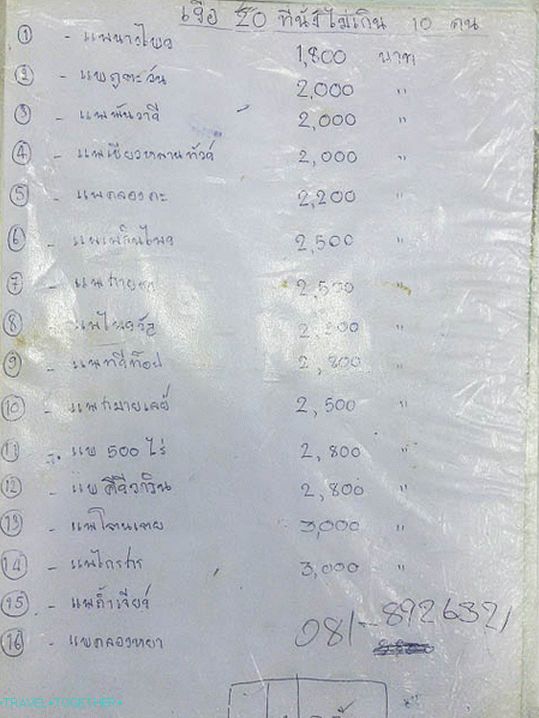 เรือ 20 ที่นั่งไม่เกิน 10 คน
① - แพนางไพร 1,800 บาท
② - แพภูตะวัน 2,000 "
③ - แพพันวารี 2,000 "
④ - แพเชี่ยวหลานทัวร์ 2,000 "
⑤ - แพคลองคะ 2,200 "
⑥ - 2,500 "
⑦ - แพสายชล 2,500 "
⑧ - "
⑨ - 2,800 "
⑩ - แพสมายเลย์ 2,500 "
⑪ - แพ 500 ไร่ 2,800 "
⑫ - แพคีรีวาริน 2,800 "
⑬ - แพโตนเตย 3,000 "
⑭ - แพไกรสร 3,000 "
⑮ - แพถ้ำเจียร์
⑯ - แพคลองหยา 081-8926321
TRAVEL-TOGETHER